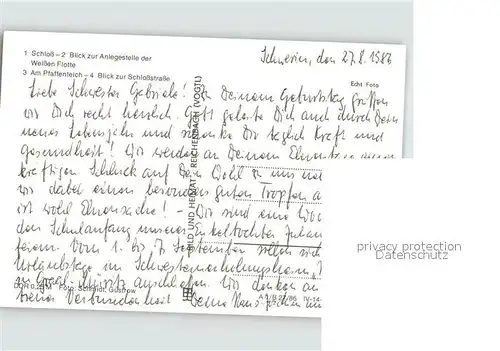 1 Schloß – 2 Blick zur Anlegestelle der
Weißen Flotte
3 Am Pfaffenteich – 4 Blick zur Schloßstraße
Schwerin, den 27.8.1986
Echt Foto
Liebe Schwester Gabriele! Zu Deinem Geburtstag grüßen
wir Dich recht herzlich. Gott geleite Dich auch durch Dein
neues Lebensjahr und schenke Dir täglich Kraft und
Gesundheit! Wir werden an Deinem Ehrentag einen
kräftigen Schluck auf Dein Wohl
wir dabei einen besonders guten Tropfen
ist wohl Ehrensache! – Wir sind eine
den Schulanfang unserer Enkeltochter
feiern. Vom 1. bis 7. September sollen sich
Urlaubstage im Schwesternerholungsheim
zu Graal-Müritz anschließen. Wir denken an
treuer Verbundenheit Deine
BILD UND HEIMAT REICHENBACH (VOGTL)
Foto: Schmidt, Güstrow
privacy protection
Datenschutz